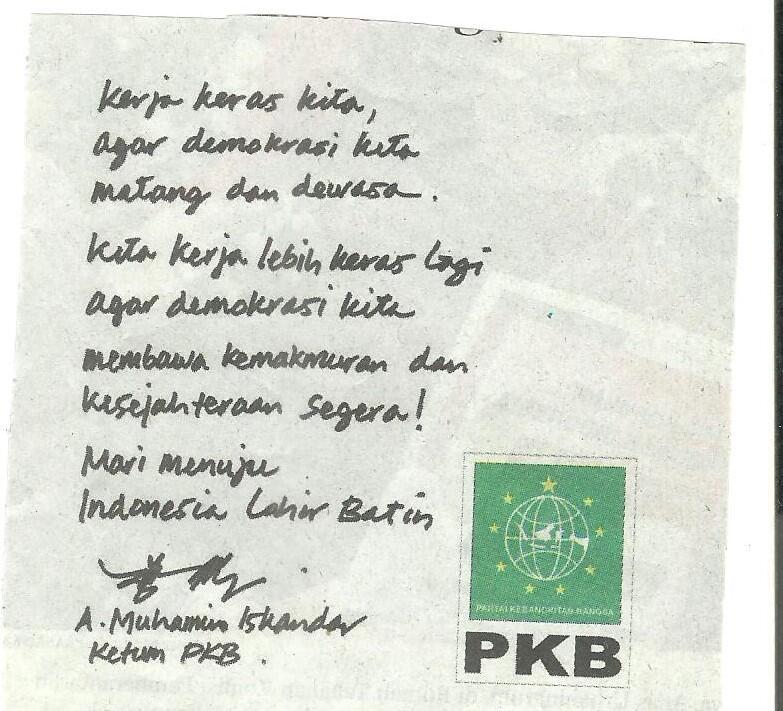 Kerja keras kita,
agar demokrasi kita
matang dan dewasa.
Kita kerja lebih keras lagi
agar demokrasi kita
membawa kemakmuran dan
kesejahteraan segera!
Mari menuju
Indonesia Lahir Batin
A. Muhaimin Iskandar
Ketum PKB.
PARTAI KEBANGKITAN BANGSA
PKB